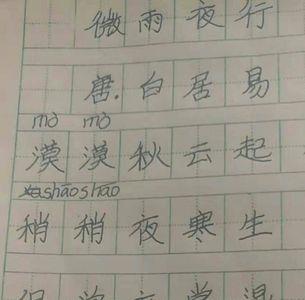 微雨夜行
唐.白居易
mò mò
漠漠秋云起
shāo shāo
稍稍夜寒生
但 衣